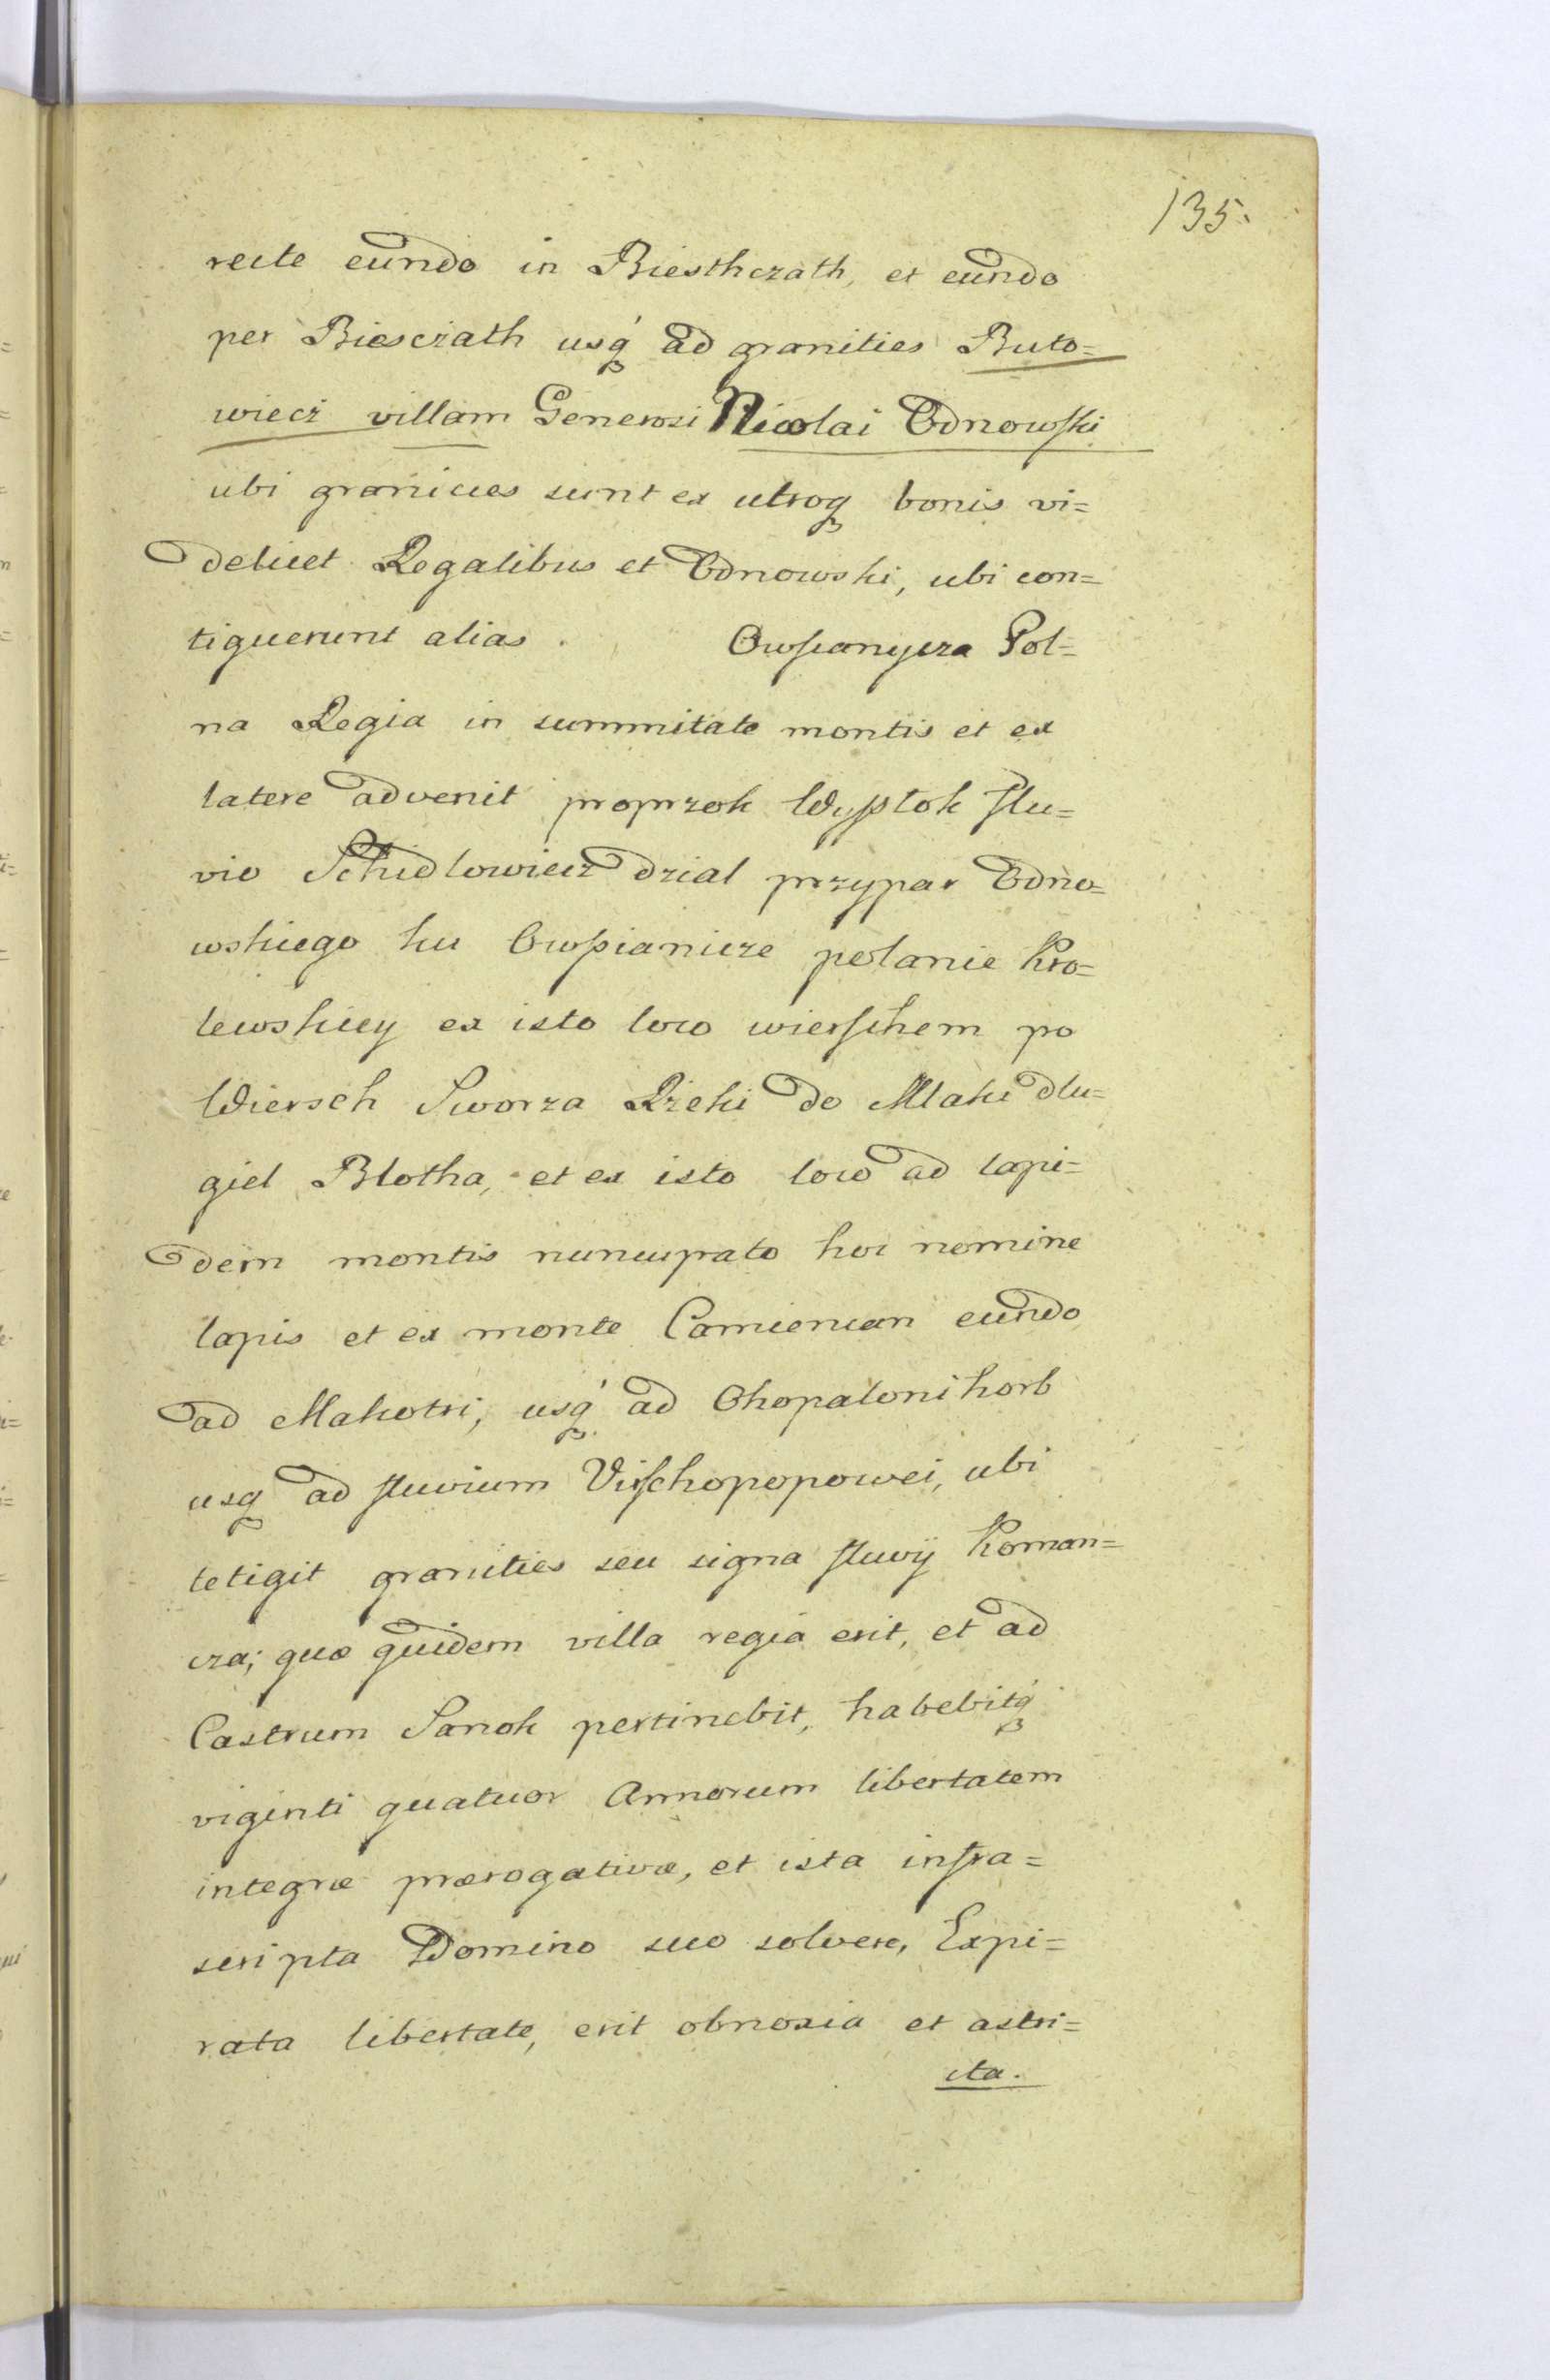 135.
recte eundo in Biesthczath, et eundo
per Biescżath usq́ ad granities Buto=
wiecż villam Generosi Nicolai Odnowski
ubi granicies sunt ex utroq bonis vi=
delicet Regalibus et Odnowski, ubi con=
tiguerunt alias . Owsianycza Pol=
na Regia in summitate montis et ex
latere advenit poprzok Wyßtok flu=
vio Schidlowiecz dzial przypar Odno=
wskiego ku Owßianicze polanie Kro=
lewskiey ex isto loco wierschem po
Wiersch Sworza Rzeki do Mlaki dlu=
giel Blotha, et ex isto loco ad lapi=
dem montis nuncupato hoc nomine
lapis et ex monte Camiencan eundo
ad Makotri, usq́ ad Ohopaloni horb
usq ad fluvium Vischopopowei, ubi
tetigit granities seu signa fluvÿ Koman=
cza; quæ quidem villa regia erit, et ad
Castrum Sanok pertinebit, habebitq́
viginti quatuor Annorum libertatem
integræ prærogativæ, et ista infra=
scripta Domino suo solvere, Expi=
rata libertate, erit obnoxia et astri=
cta.